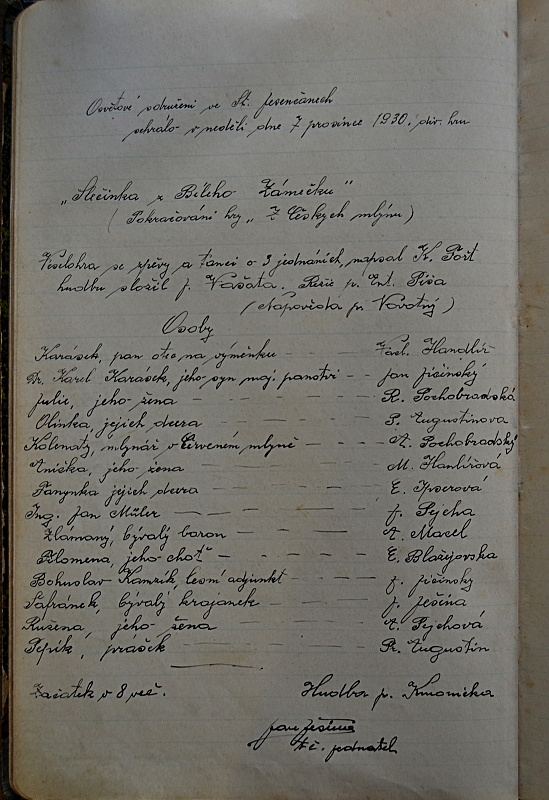 Osvětové sdružení ve St. Jesenčanech
sehrálo v neděli dne 7 prosince 1930. div. hru
„Slečinka z Bílého Zámečku"
( Pokračování hry „ Z Českých mlýnů )
Veselohra se zpěvy a tanci o 3 jednáních, napsal K. Fořt
hudbu složil J. Vašata. Režie p. Ant. Píša
( Napovědá p. Novotný )
Osoby
Karásek, pan otec na výměnku — — — Václ. Handlíř
Dr. Karel Karásek, jeho syn maj. panství — — Jan Jičinský
Julie, jeho žena — — — — R. Pochobradská
Olinka, jejich dcera — — — — P. Augustinova
Kolenatý, mlynář v Červeném mlýně — — — A. Pochobradský
Aniška, jeho žena — — — — M. Hanlířová
Fanynka jejich dcera — — — — E. Ipserová
Ing. Jan Müler — — — — J. Pejcha
Zlámaný, bývalý baron — — — — A. Masel
Filomena, jeho choť — — — — E. Blažejovska
Bohuslav Kamzík, lesní adjunkt — — — J. Jičinský
Šafránek, bývalý krajánek — — — J. Ješina
Růžena, jeho žena — — — — A. Pejchová
Pepík, prášek — — — — R. Augustin
Začátek v 8 več. Hudba p. Kmonička
Jan Ješina
t. č. jednatel